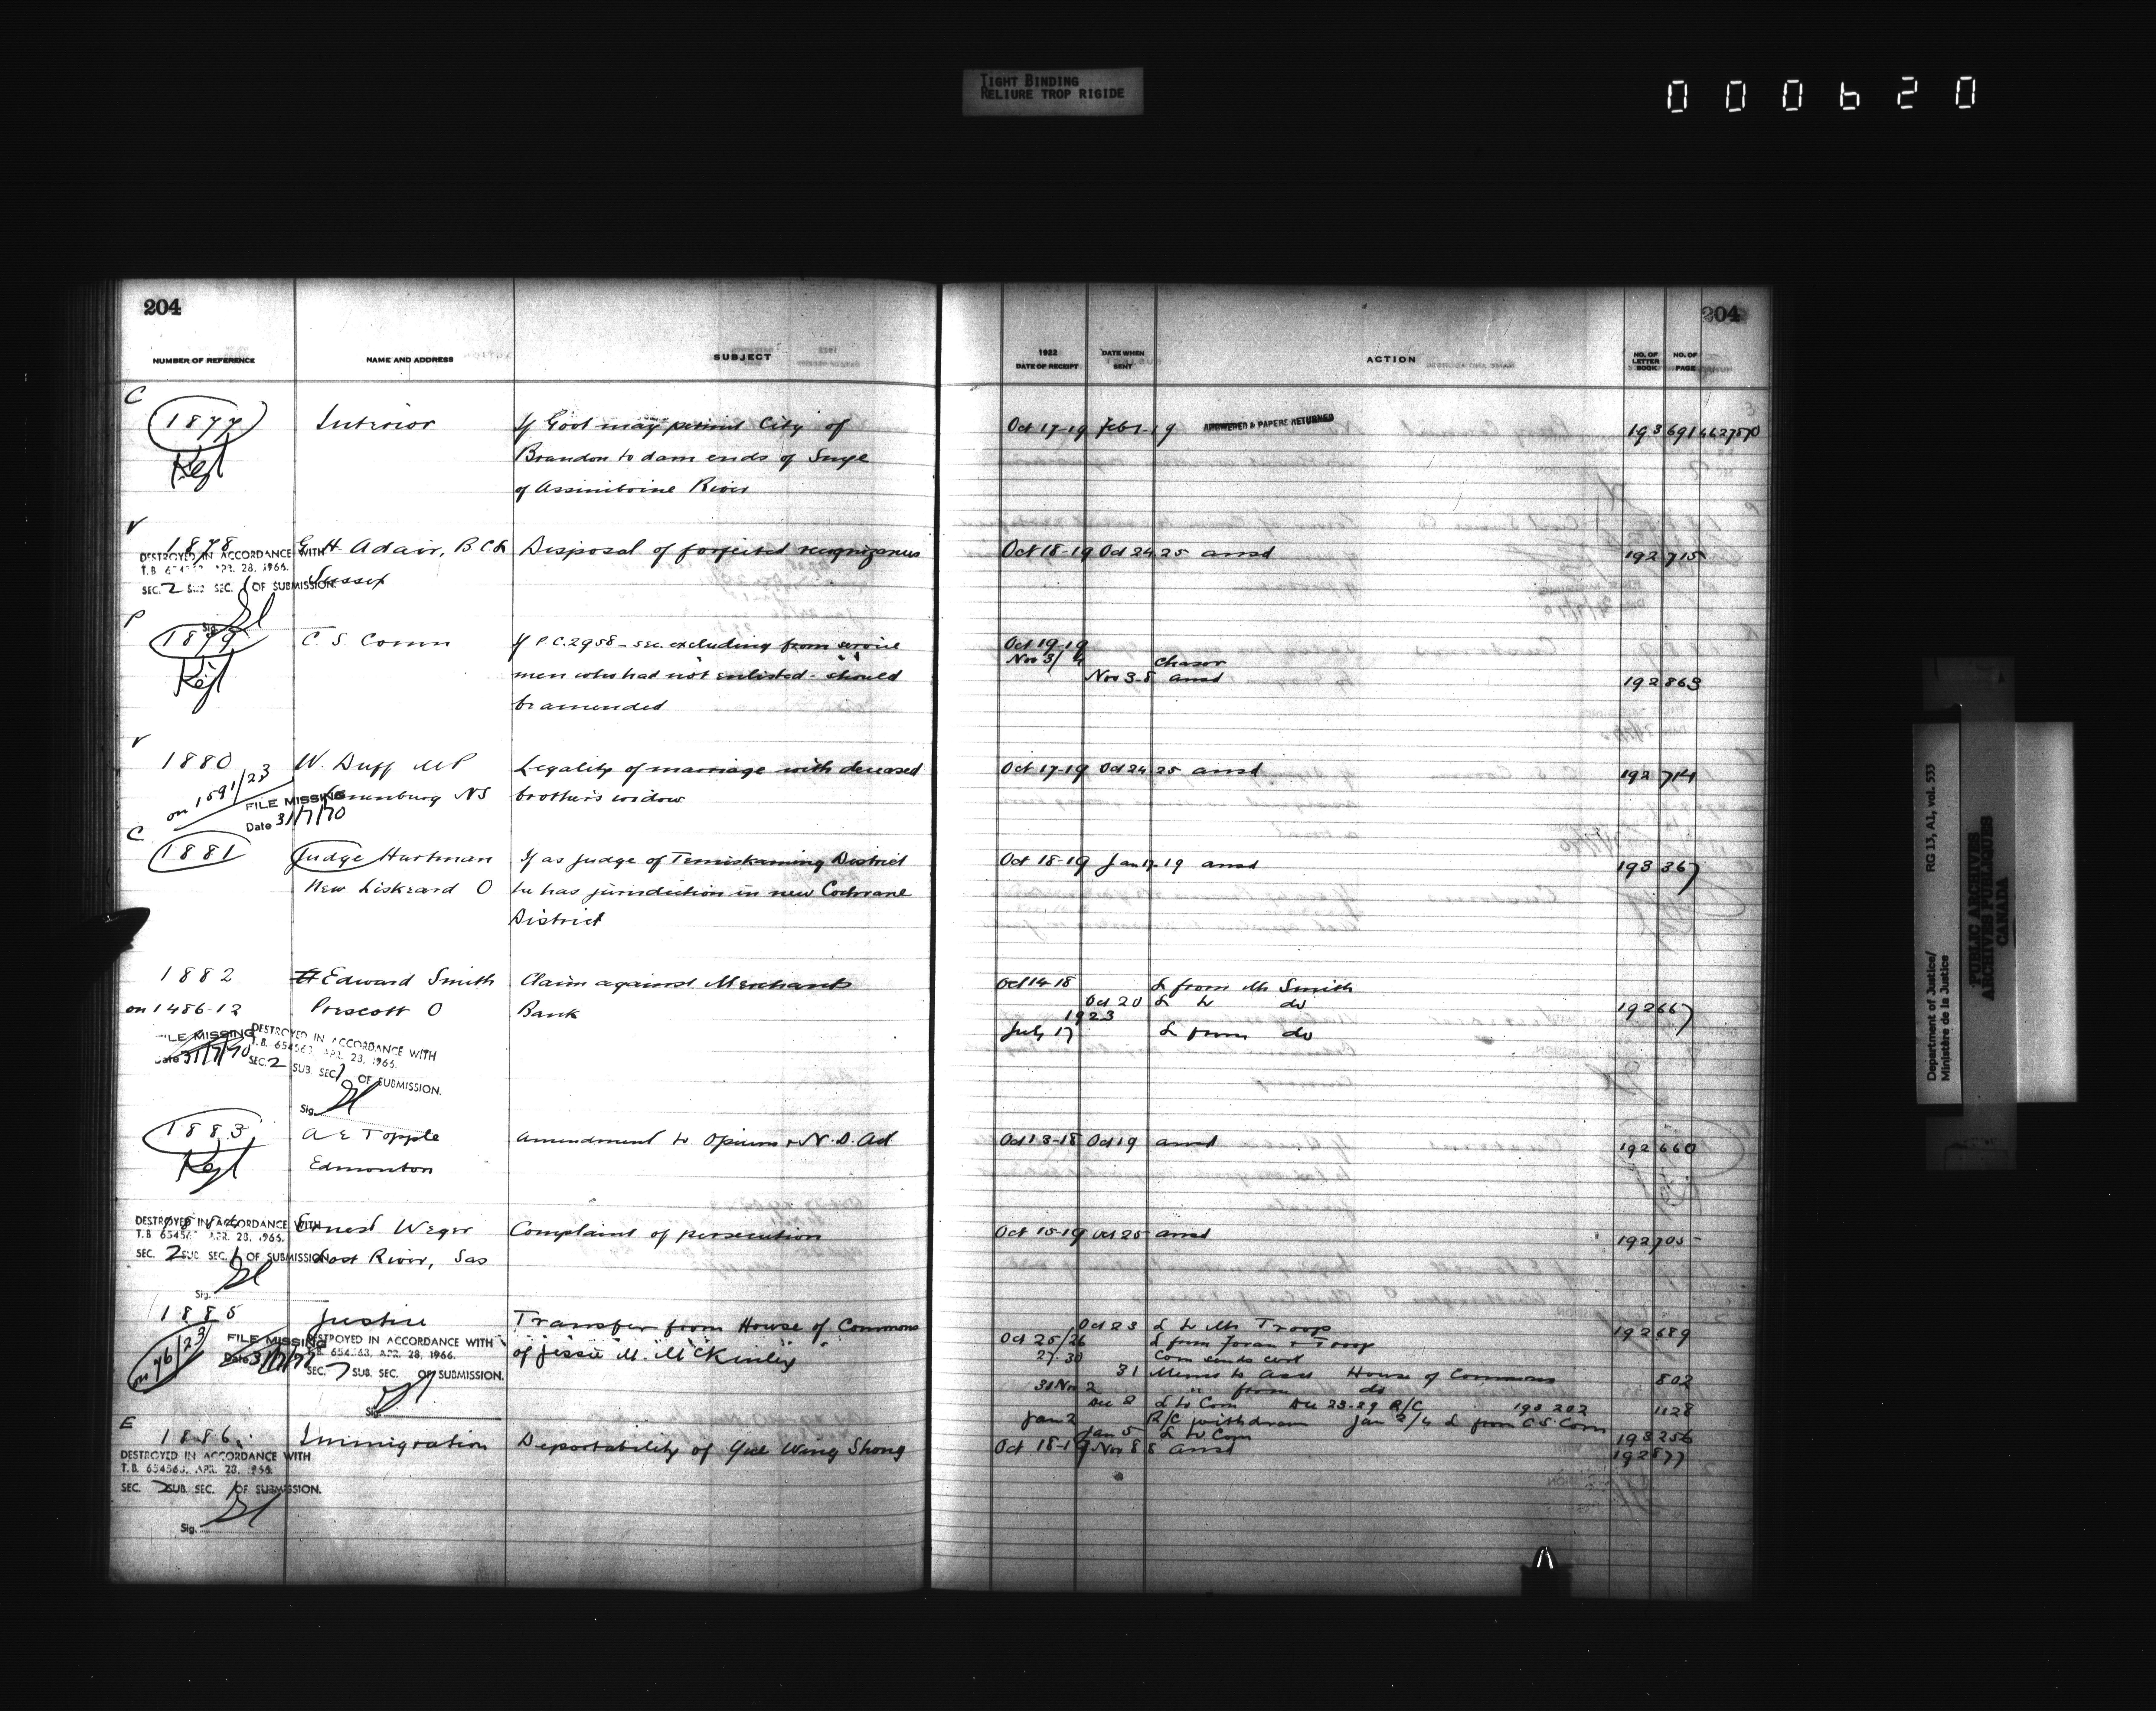 TIGHT BINDING
RELIURE TROP RIGIDE
000620
204
204
NUMBER OF REFERENCE NAME AND ADDRESS SUBJECT 1922 DATE OF RECEIPT DATE WHEN SENT ACTION NO. OF LETTER BOOK NO. OF PAGE
C
1877 Interior If Govt may permit City of Oct 17-19 Feb 1-19 ANSWERED & PAPERS RETURNED 193 691
Brandon to dam ends of
of Assiniboine River
V
1878 H Adair, B C L Disposal of forfeited recognizances Oct 18-19 Oct 24 25 ansd 192 715
DESTROYED IN ACCORDANCE WITH
T.B. APR. 28, 1966.
SEC. 2 SUB SEC. 1 OF SUBMISSION.
Sussex
Sig.
P
1879 C. S. Comn If P C. 2958 - sec. excluding from service Oct 19-19
Nov 3/4 chaser
men who had not enlisted - should Nov 3-8 ansd 192 863
be amended
V
1880 W. Duff MP Legality of marriage with deceased Oct 17-19 Oct 24 25 ansd 192 714
on 1591/23 Lunenburg NS brother's widow
FILE MISSING
Date 31/7/70
C
1881 Judge Hartman If as judge of Temiskaming District Oct 18-19 Jan 17-19 ansd 193 367
New Liskeard O he has jurisdiction in new Cochrane
District
1882 Edward Smith Claim against Merchants Oct 14-18 L from Mr Smith
on 1486-12 Prescott O Bank Oct 20 L to do 192 667
1923
July 17 L from do
FILE MISSING
Date 31/7/70
DESTROYED IN ACCORDANCE WITH
T.B. 654563 APR. 28, 1966.
SEC. 2 SUB. SEC. 1 OF SUBMISSION.
Sig.
1883 A E Topple Amendment to Opium & N. D. Act Oct 13-18 Oct 19 ansd 192 660
Edmonton
Ernest Weger Complaint of persecution Oct 15-19 Oct 25 ansd 192 705
DESTROYED IN ACCORDANCE WITH
T.B. APR. 28, 1966.
SEC. 2 SUB SEC. 1 OF SUBMISSION
Lost River, Sas
Sig.
1885 Justice Transfer from House of Commons Oct 23 L to Mr Troop 192 689
on 76/23 of Jessie M. McKinley Oct 25/26 L from Foran & Troop
FILE MISSING
Date 31/7/70
DESTROYED IN ACCORDANCE WITH
654563, APR. 28, 1966.
SEC. 7 SUB. SEC. OF SUBMISSION.
Sig.
27-30 Com sends cert
31 Memo to Asst House of Commons 802
31 Nov 2 " from do
Dec 8 L to Com Dec 23-29 R/C 193 202 1128
Jan 2 R/C withdrawn Jan 3/4 L from C S. Com
Jan 5 L to Com 193 256
E
1886 Immigration Deportability of Yee Wing Shong Oct 18-19 Nov 8 8 ansd 192 877
DESTROYED IN ACCORDANCE WITH
T.B. 654563, APR. 28, 1966.
SEC. 2 SUB. SEC. 1 OF SUBMISSION.
Sig.
Department of Justice/
Ministère de la Justice
RG 13, A1, vol. 533
PUBLIC ARCHIVES
ARCHIVES PUBLIQUES
CANADA